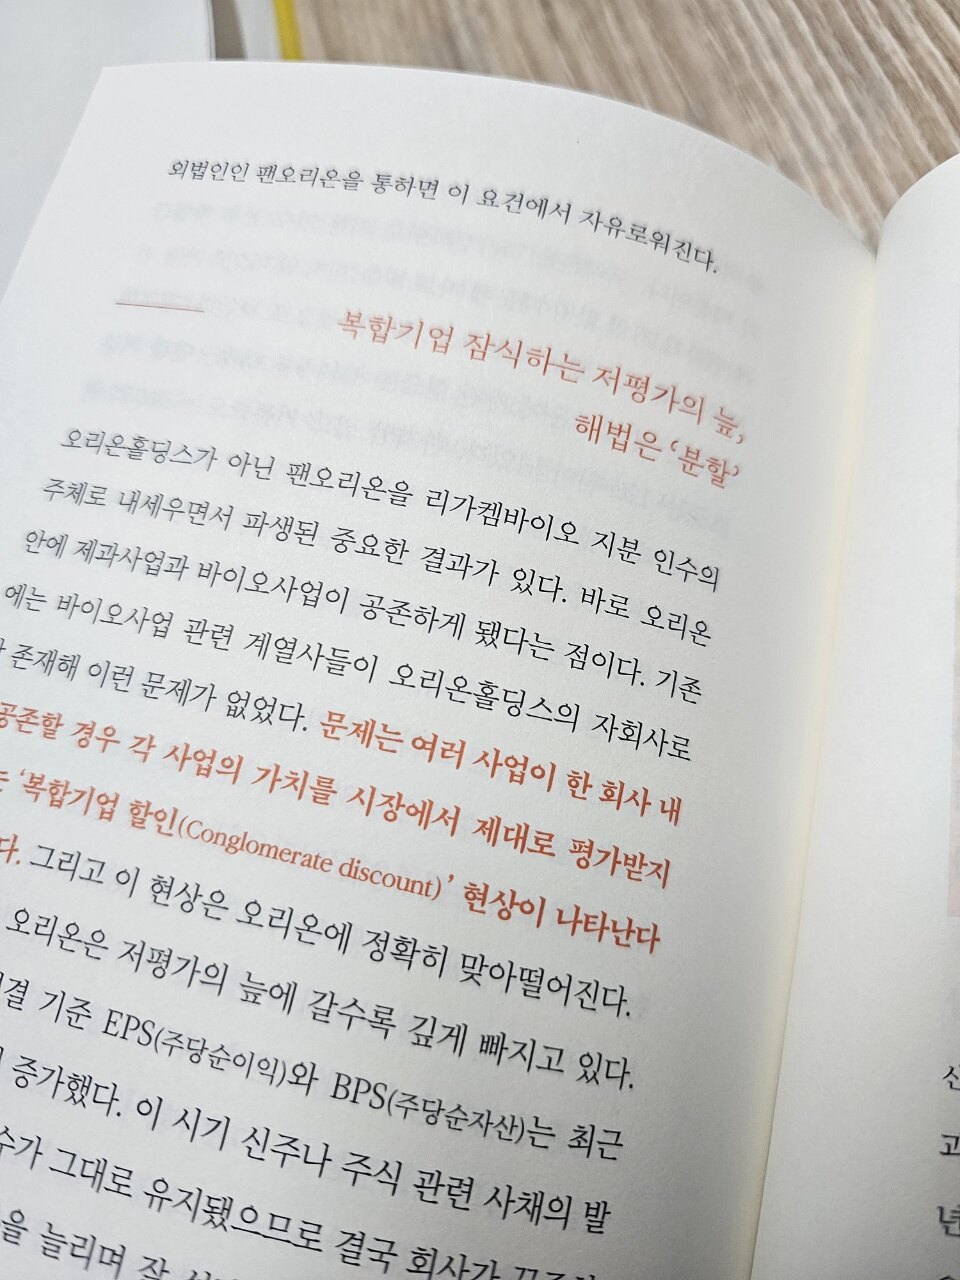 외법인인 팬오리온을 통하면 이 요건에서 자유로워진다.
복합기업 잠식하는 저평가의 늪,
해법은 ‘분할’
오리온홀딩스가 아닌 팬오리온을 리가켐바이오 지분 인수의
주체로 내세우면서 파생된 중요한 결과가 있다. 바로 오리온
안에 제과사업과 바이오사업이 공존하게 됐다는 점이다. 기존
에는 바이오사업 관련 계열사들이 오리온홀딩스의 자회사로
존재해 이런 문제가 없었다. 문제는 여러 사업이 한 회사 내
공존할 경우 각 사업의 가치를 시장에서 제대로 평가받지
는 ‘복합기업 할인(Conglomerate discount)’ 현상이 나타난다
다. 그리고 이 현상은 오리온에 정확히 맞아떨어진다.
오리온은 저평가의 늪에 갈수록 깊게 빠지고 있다.
결 기준 EPS(주당순이익)와 BPS(주당순자산)는 최근
증가했다. 이 시기 신주나 주식 관련 사채의 발
수가 그대로 유지됐으므로 결국 회사가
을 늘리며 잘